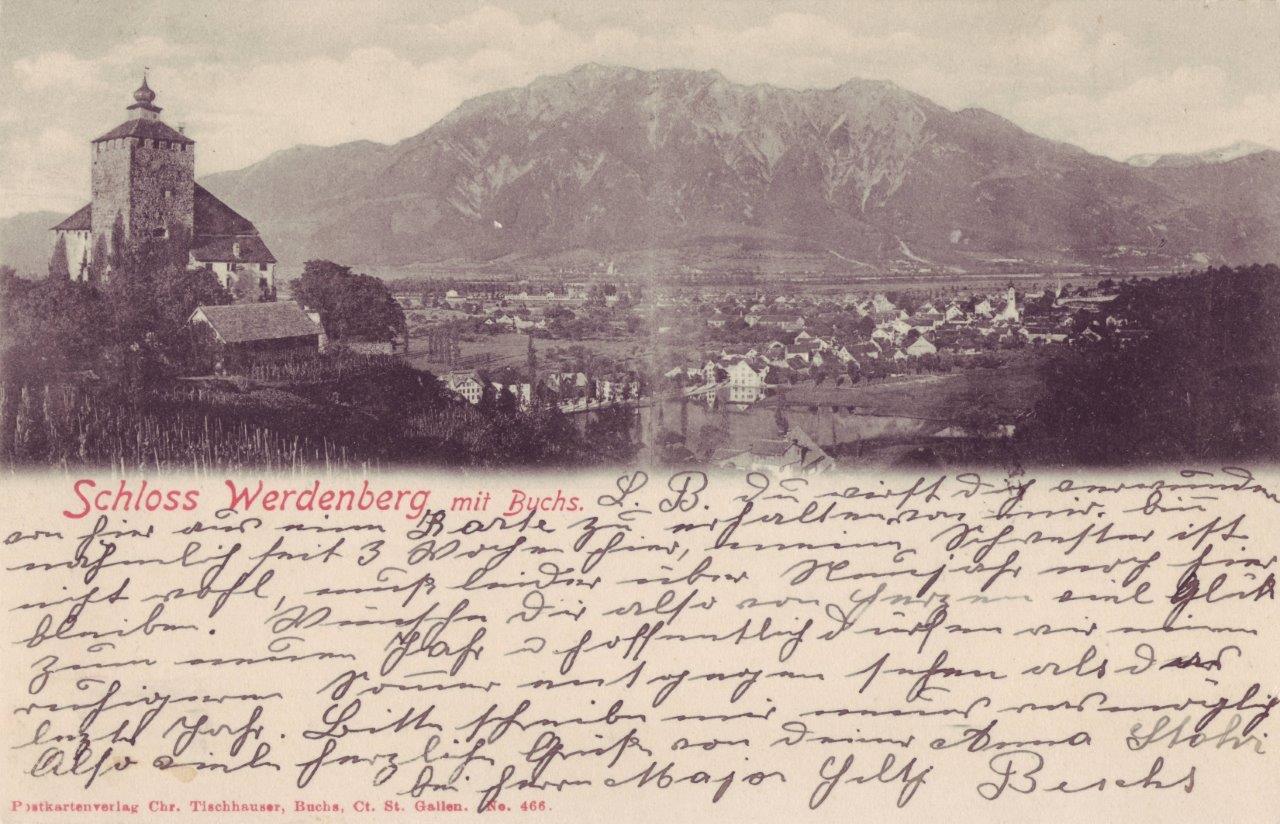 Schloss Werdenberg mit Buchs.
L. B. du wirst dich verwunden
von hier aus eine Karte zu erhalten von mir. bin
nähmlich seit 3 Wochen hier, meine Schwester ist
nicht wohl, muß leider über Neujahr noch hier
bleiben. Wünsche Dir also von Herzen viel Glük
zum neuen Jahr u hoffentlich dürfen wir einen
ruhigeren Somer entgegen sehen als das
lezte Jahr. Bitte schreibe mir neues was möglich
Also viele herzliche Grüße von deiner Anna
bei Herrn Major
Postkartenverlag Chr. Tischhauser, Buchs, Ct. St. Gallen. No. 466.